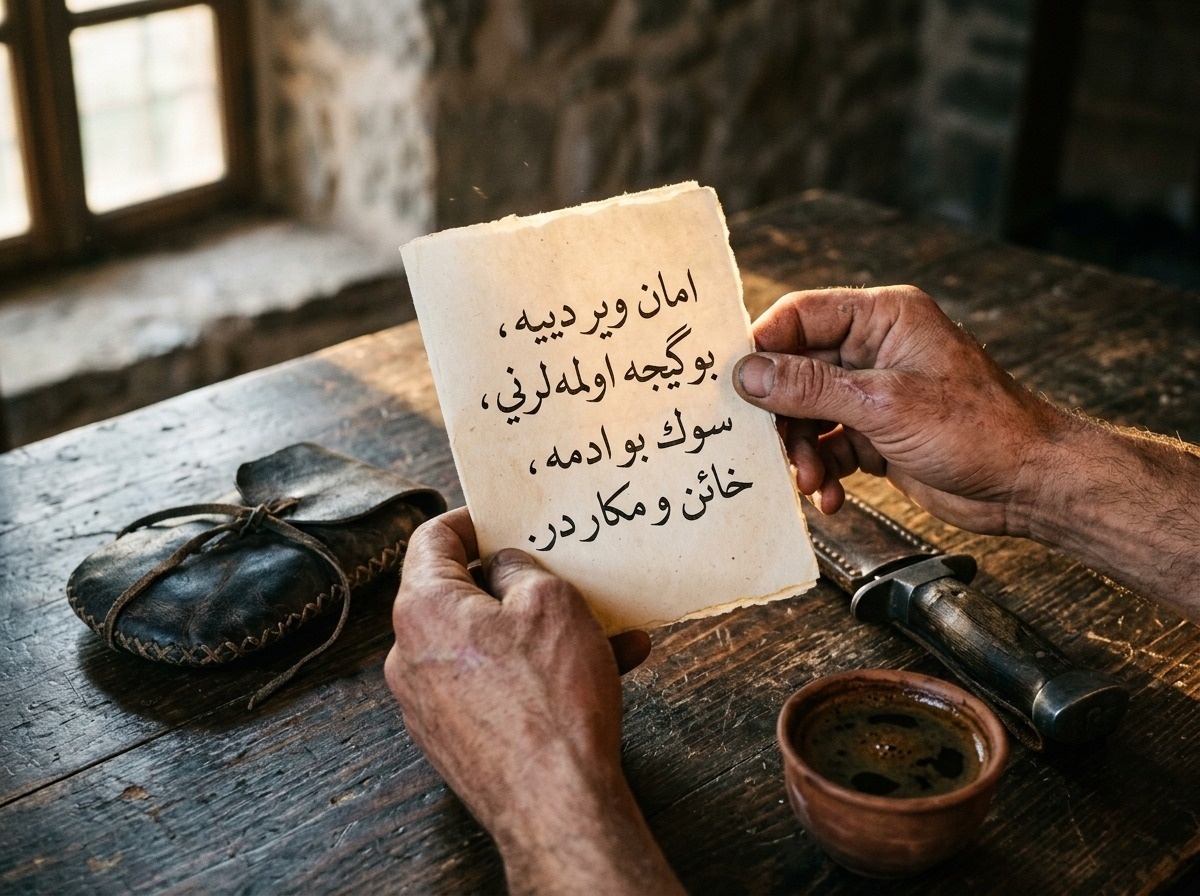 امان وير دييه،
بو گيجه اولمه‌لرني،
سوك بو ادمه،
خائن و مكار در.